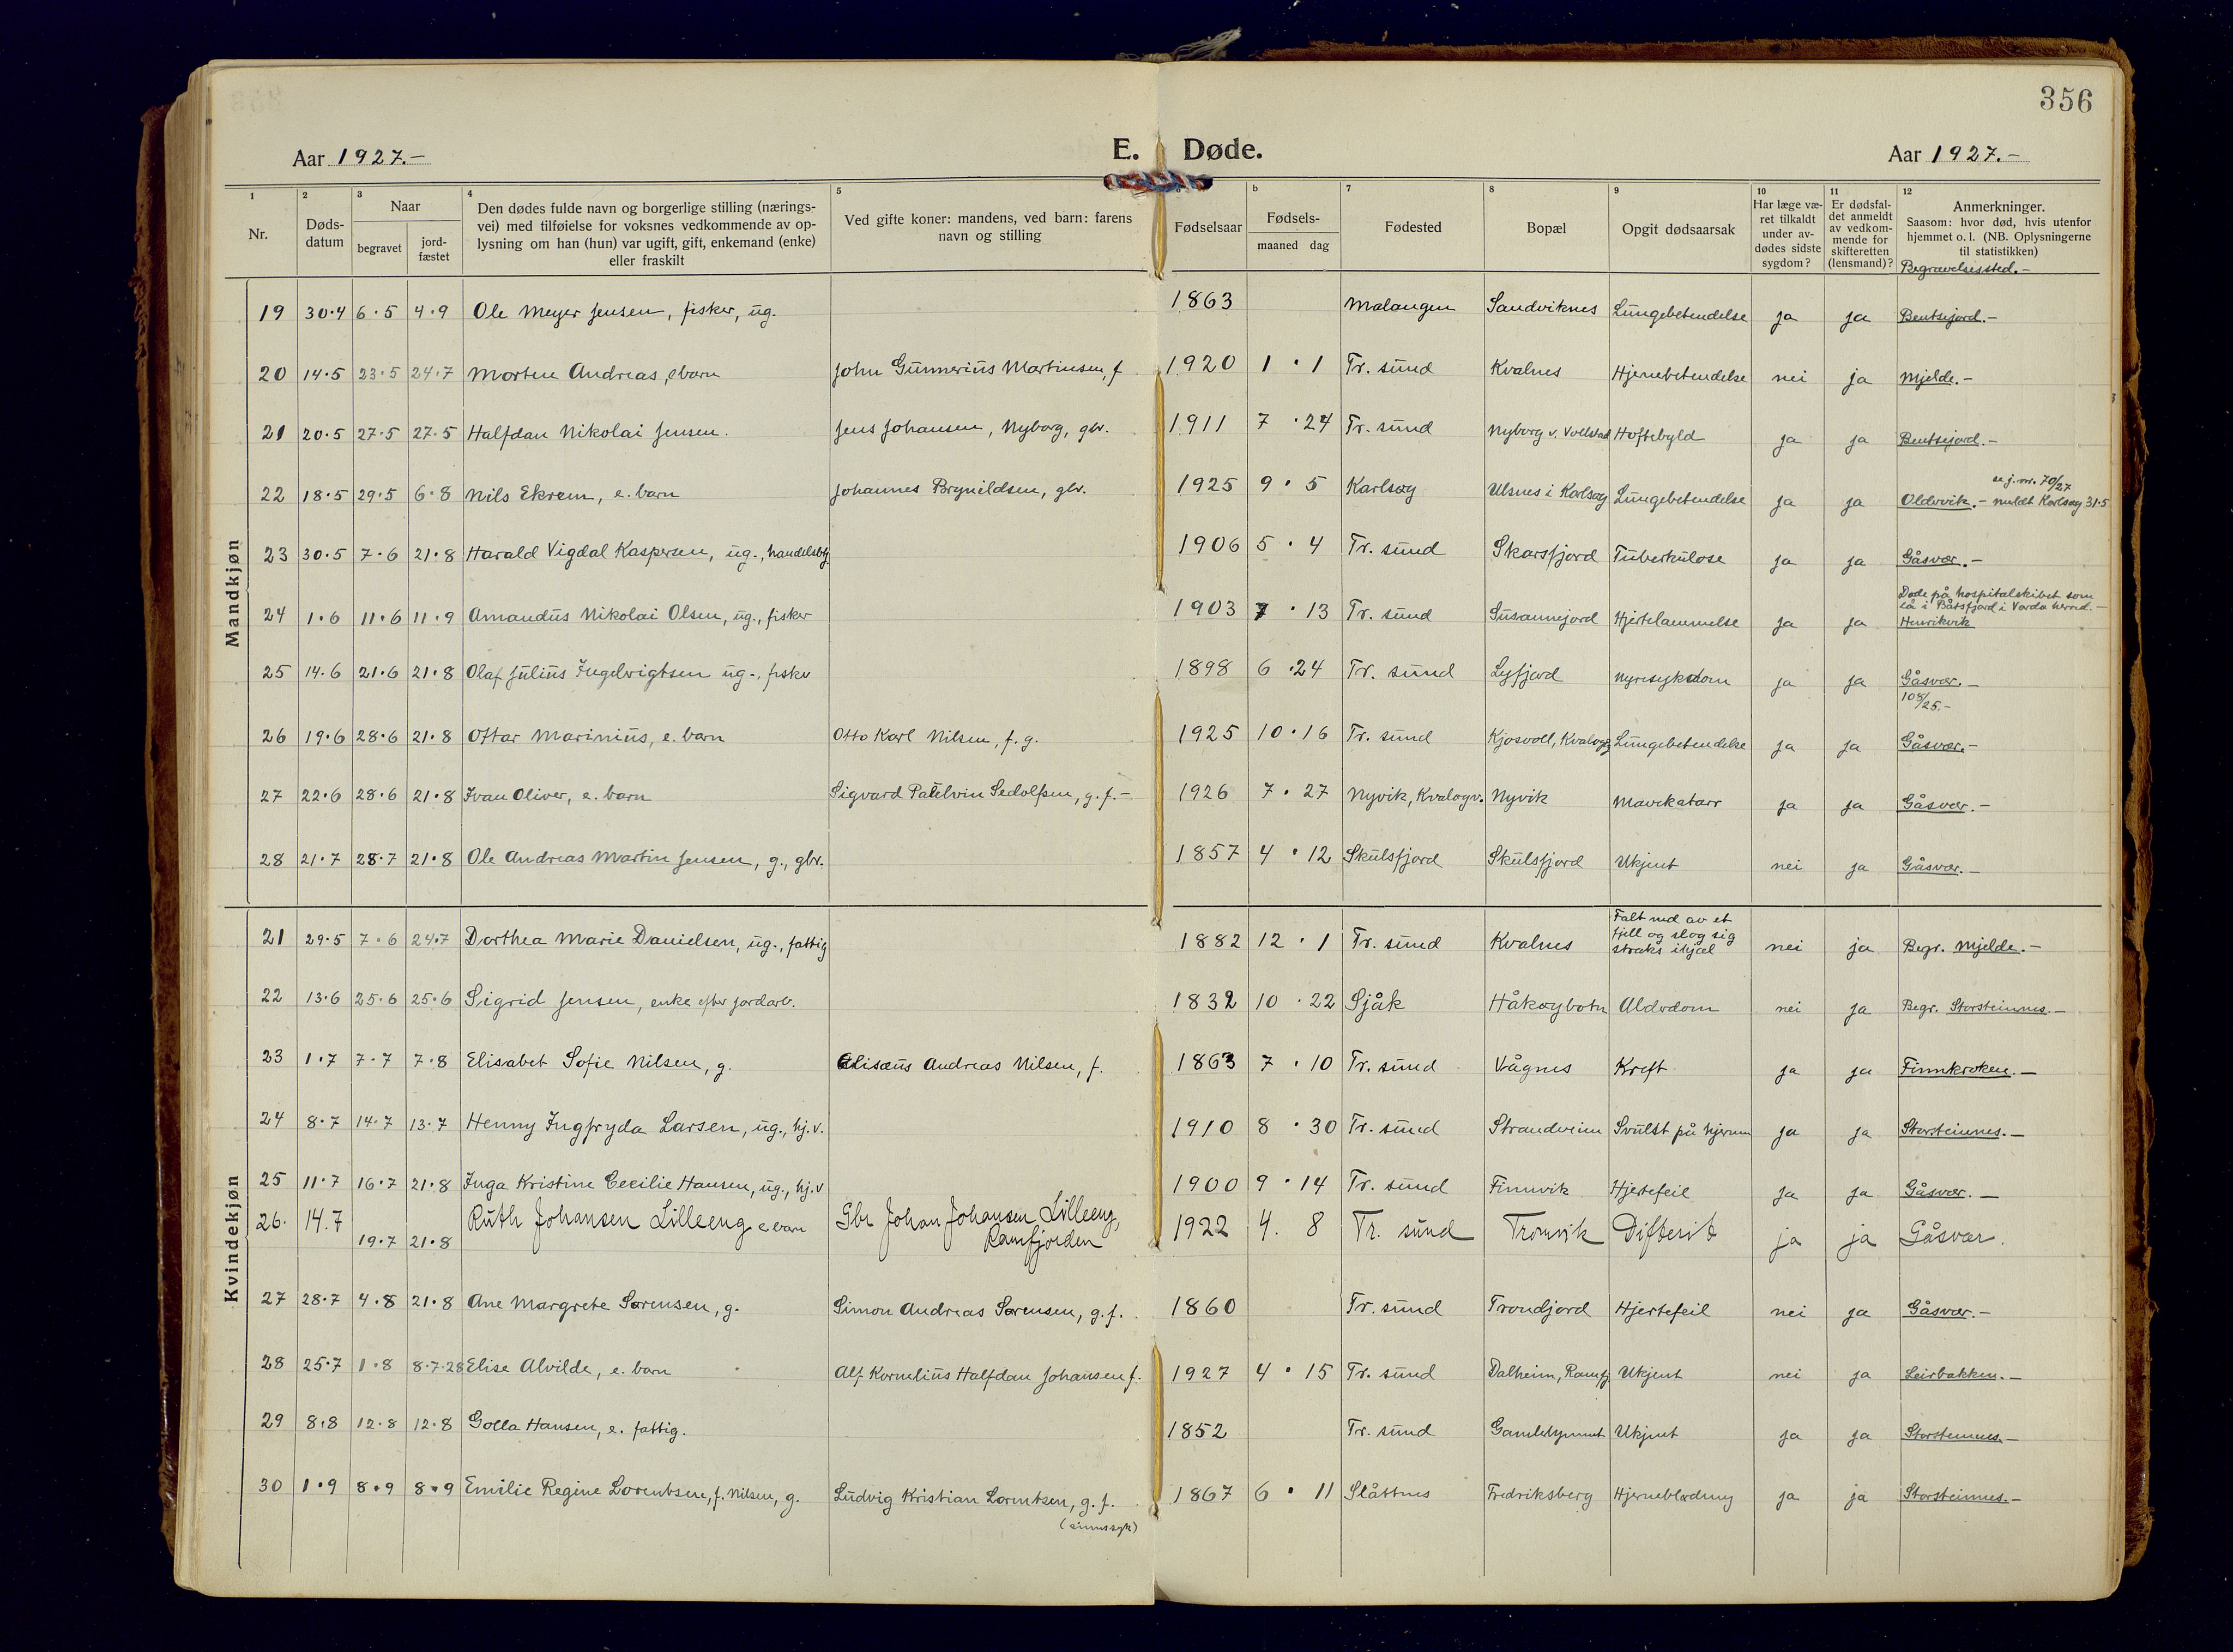 356
Aar 1927.- E. Døde. Aar 1927.-
1 2 3 4 5 6 b 7 8 9 10 11 12
Nr. Døds-datum Naar begravet jord-fæstet Den dødes fulde navn og borgerlige stilling (nærings-vei) med tilføielse for voksnes vedkommende av op-lysning om han (hun) var ugift, gift, enkemand (enke) eller fraskilt Ved gifte koner: mandens, ved barn: farens navn og stilling Fødselsaar Fødsels- maaned dag Fødested Bopæl Opgit dødsaarsak Har læge væ-ret tilkaldt under av-dødes sidste sygdom? Er dødsfal-det anmeldt av vedkom-mende for skifteretten (lensmand)? Anmerkninger. Saasom: hvor død, hvis utenfor hjemmet o. l. (NB. Oplysningerne til statistikken) Begravelsessted.-
Mandkjøn
19 30.4 6.5 4.9 Ole Meyer Jensen, fisker, ug. 1863 Malangen Sandviknes Lungebetendelse ja ja Bentsjord.-
20 14.5 23.5 24.7 Morten Andreas, e barn John Gunnerius Martinsen, f 1920 1 . 1 Tr. sund Kvalnes Hjernebetendelse nei ja Mjelde.-
21 20.5 27.5 27.5 Halfdan Nikolai Jensen. Jens Johansen, Nyborg, gbr. 1911 7 . 24 Tr. sund Nyborg v. Vollstad Hoftebyld ja ja Bentsjord.-
22 18.5 29.5 6.8 Nils Ekrem, e. barn Johannes Brynildsen, gbr. 1925 9 . 5 Karlsøy Ulsnes i Karlsøy Lungebetendelse ja ja se j.nr. 70/27 Oldervik.- meldt Karlsøy 31.5
23 30.5 7.6 21.8 Harald Vigdal Kaspersen, ug., handelsbtj. 1906 5 . 4 Tr. sund Skarsfjord Tuberkulose ja ja Gåsvær.-
24 1.6 11.6 11.9 Amandus Nikolai Olsen, ug., fisker 1903 7 . 13 Tr. sund Susannejord Hjertelammelse ja ja Døde på hospitalskibet som lå i Båtsfjord i Vardø herred.- Henrikvik
25 14.6 21.6 21.8 Olaf Julius Ingebrigtsen ug., fisker 1898 6 . 24 Tr. sund Lyfjord Nyresykdom ja ja Gåsvær.-
26 19.6 28.6 21.8 Ottar Marinius, e. barn Otto Karl Nilsen, f. g. 1925 10 . 16 Tr. sund Kjosvoll, Kvaløy Lungebetendelse ja ja 108/25.- Gåsvær.-
27 22.6 28.6 21.8 Ivan Oliver, e. barn Sigvard Sedolfsen, g. f.- 1926 7 . 27 Nyvik, Kvaløyv. Nyvik Mavekatarr ja ja Gåsvær.-
28 21.7 28.7 21.8 Ole Andreas Martin Jensen, g., gbr. 1857 4 . 12 Skulsfjord Skulsfjord Ukjent nei ja Gåsvær.-
Kvindekjøn
21 29.5 7.6 24.7 Dorthea Marie Danielsen, ug., fattig 1882 12 . 1 Tr. sund Kvalnes Falt ned av et fjell og slog sig straks ihjæl nei ja Begr. Mjelde.-
22 13.6 25.6 25.6 Sigrid Jensen, enke efter jordarb. 1832 10 . 22 Sjåk Håkøybotn Alderdom nei ja Begr. Storsteinnes.-
23 1.7 7.7 7.8 Elisabet Sofie Nilsen, g. Elisæus Andreas Nilsen, f. 1863 7 . 10 Tr. sund Vågnes Kreft ja ja Finnkroken.-
24 8.7 14.7 13.7 Henny Ingfryda Larsen, ug., hj.v. 1910 8 . 30 Tr. sund Strandheim Svulst på hjernen ja ja Storsteinnes.-
25 11.7 16.7 21.8 Inga Kristine Cecilie Hansen, ug., hj.v 1900 9 . 14 Tr. sund Finnvik Hjertefeil ja ja Gåsvær.-
26. 14.7 19.7 21.8 Ruth Johansen Lilleeng e barn Gbr Johan Johansen Lilleeng, Ramfjorden 1922 4. 8 Tr. sund Tromvik Difterit ja ja Gåsvær.
27 28.7 4.8 21.8 Ane Margrete Sørensen, g. Simon Andreas Sørensen, g. f. 1860 Tr. sund Trondjord Hjertefeil nei ja Gåsvær.-
28 25.7 1.8 8.7.28 Elise Alvilde, e. barn Alf Kornelius Halfdan Johansen f. 1927 4 . 15 Tr. sund Dalheim, Ramfj Ukjent nei ja Leirbakken.-
29 8.8 12.8 12.8 Golla Hansen, e. fattig. 1852 Tr. sund Gammelgammen Ukjent ja ja Storsteinnes.-
30 1.9 8.9 8.9 Emilie Regine Lorentsen, f. Nilsen, g. Ludvig Kristian Lorentsen, g. f. (sinnssyk) 1867 6 . 11 Slåttnes Fredriksberg Hjerneblødning ja ja Storsteinnes.-